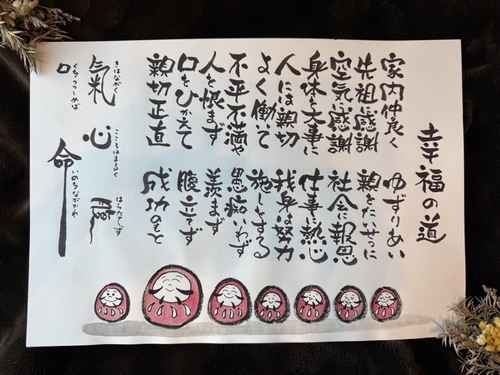 幸福の道
家内仲良く ゆずりあい
先祖に感謝 親をたいせつに
空気に感謝 社会に報恩
身体を大事に 仕事に熱心
人には親切 我身は努力
よく働いて 施しをする
不平不満や 愚痴いわず
人を恨まず 羨まず
口をひかえて 腹立てず
親切正直 成功のもと
氣 きはながく
心 こころはまるく
腹 はらたてず
口 くちつつしめば
命 いのちながかれ